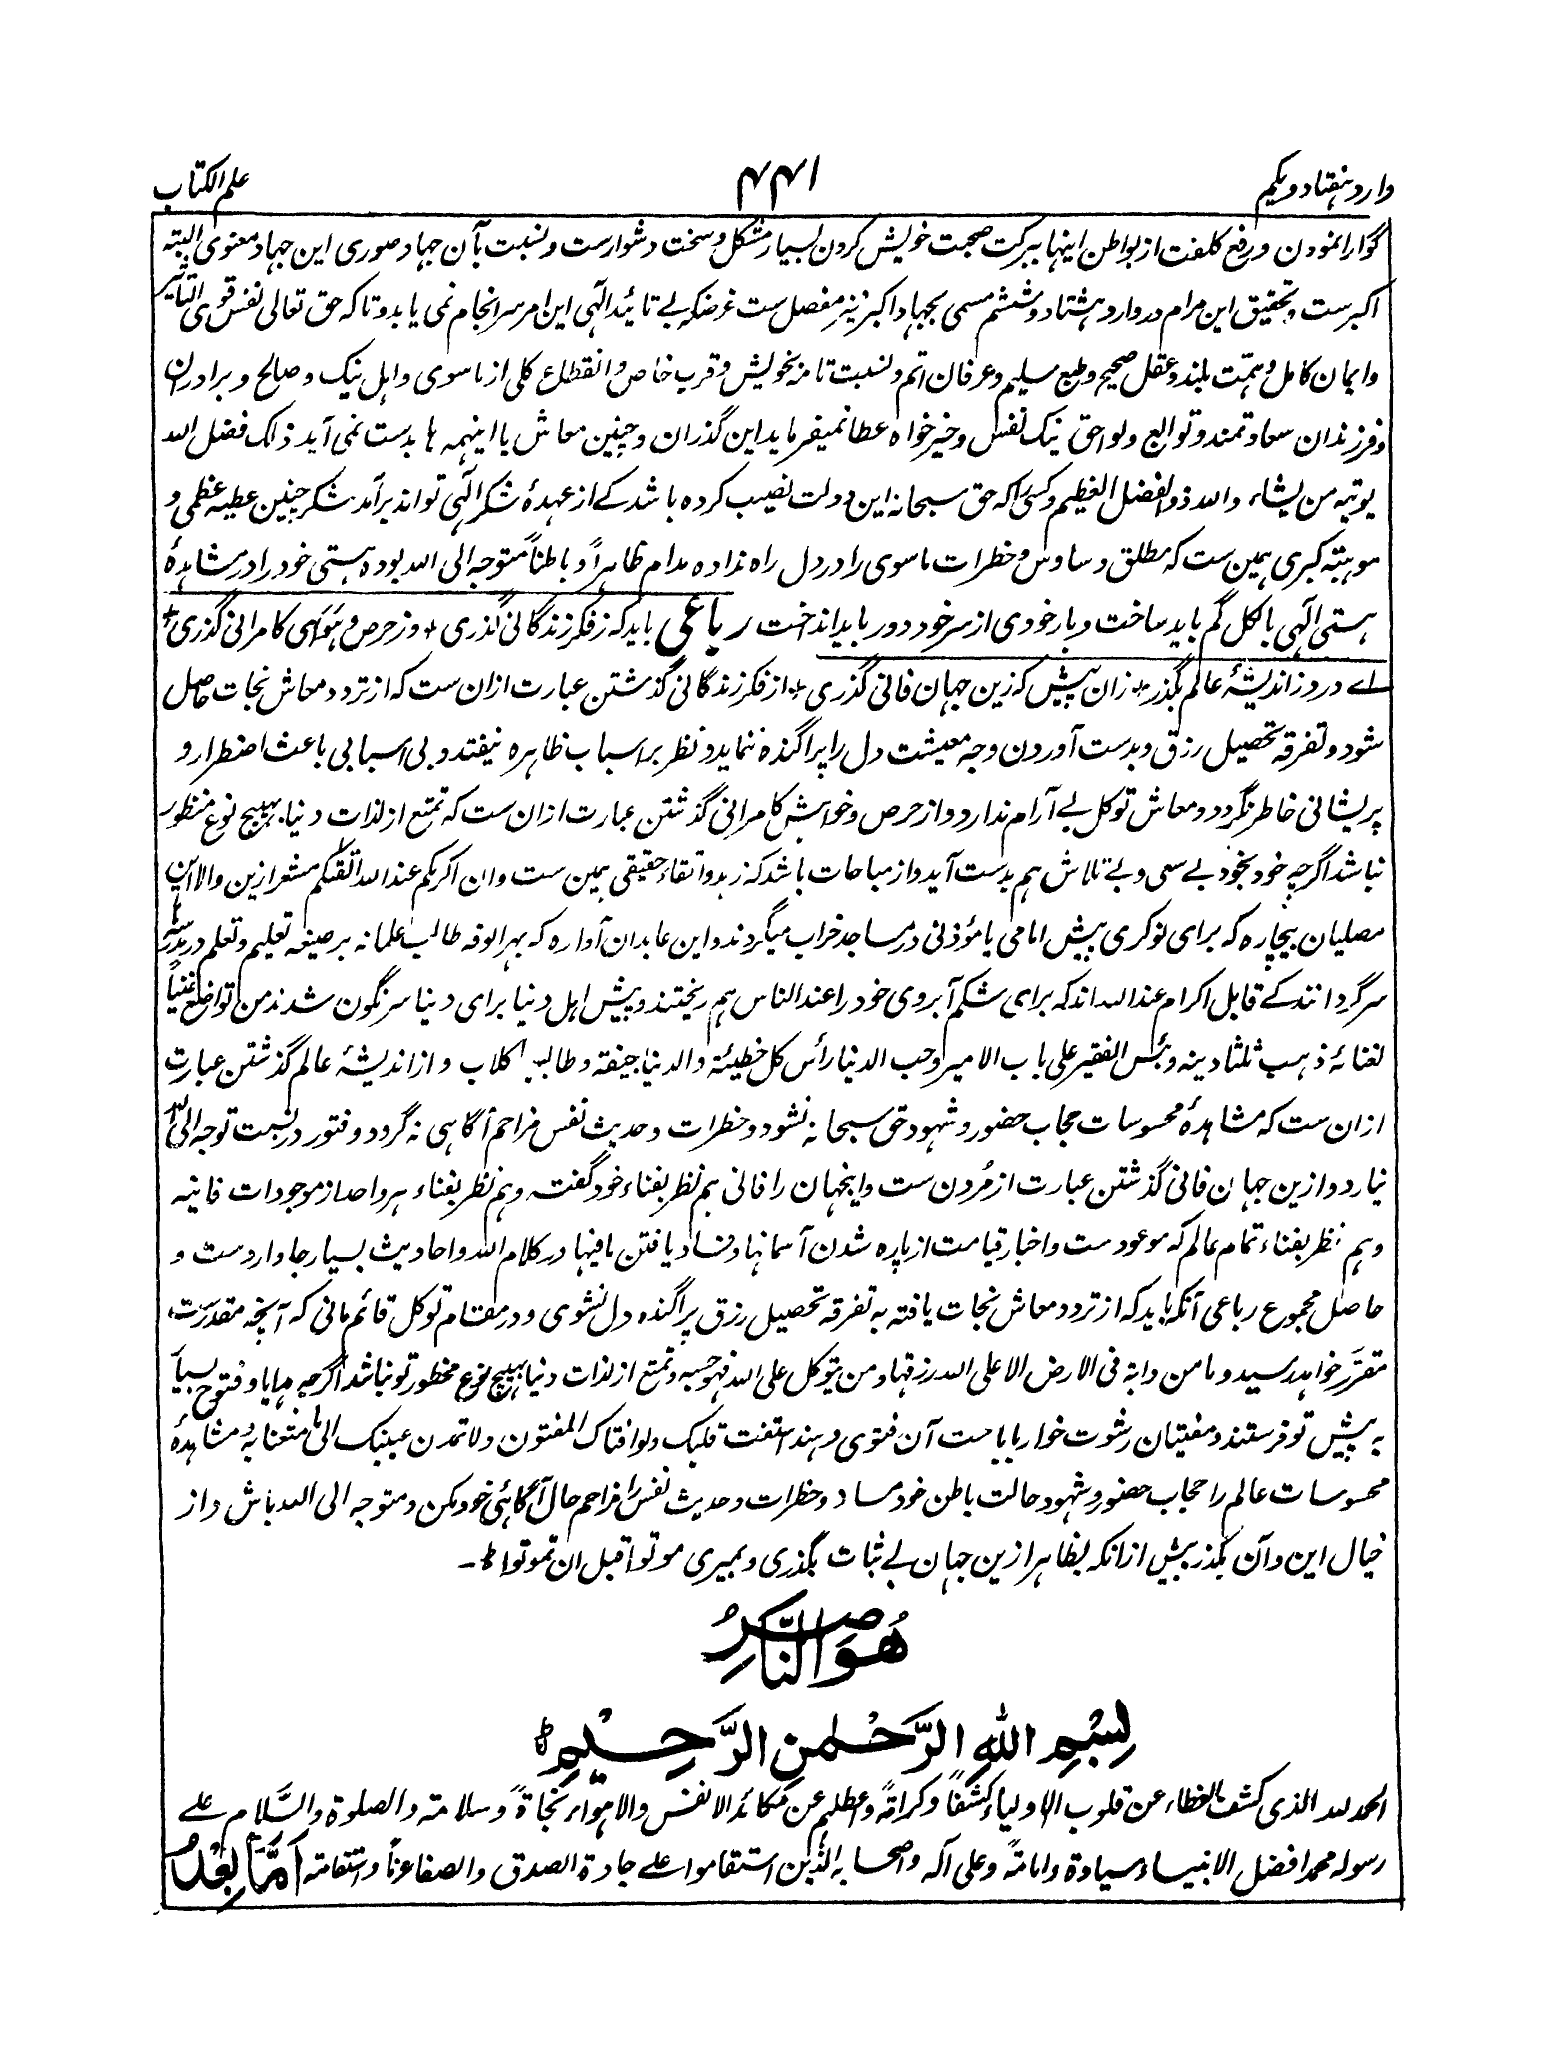 وارد ہفتاد ویکم
۴۴۱
علم الکتاب
گوارا نمودن و رفع کلفت از بواطن اینها ببرکت صحبت خویش کردن بسیار مشکل و سخت دشوارست و نسبت بآن جهاد صوری این جهاد معنوی البته
اکبرست و تحقیق این مرام در وارد هشتاد و ششم مسمی بجهاد اکبر نیز مفصل ست غرضکه بے تائید الٰهی این امر سرانجام نمی یابد و تا که حق تعالی نفس قوی التاثیر
و ایمان کامل و همت بلند و عقل صحیح و طبع سلیم و عرفان اتم و نسبت تامه بخویش و قرب خاص و انقطاع کلی از ماسوی و اهل نیک و صالح و برادران
و فرزندان سعادتمند و توابع و لواحق نیک نفس و خیر خواه عطا نمیفرماید این گذران و چنین معاش با اینهمه ها بدست نمی آید ذلک فضل الله
یوتیه من یشاء والله ذو الفضل العظیم و کسی را که حق سبحانه این دولت نصیب کرده باشد کے از عهدهٔ شکر الٰهی تواند برآمد شکر چنین عطیه عظمی و
موهبته کبری همین ست که مطلق وساوس و خطرات ماسوی را در دل راه نداده مدام ظاهراً و باطناً متوجه الی الله بوده هستی خود را در مشاهدهٔ
هستی الٰهی بالکل گم باید ساخت و بار خودی از سر خود دور باید انداخت رباعی باید که ز فکر زندگانی گذری + وز حرص و هوای کامرانی گذری +
اے درد ز اندیشهٔ عالم بگذر + زان پیش که زین جهان فانی گذری + از فکر زندگانی گذشتن عبارت ازان ست که از تردد معاش نجات حاصل
شود و تفرقه تحصیل رزق و بدست آوردن وجه معیشت دل را پراگنده ننماید و نظر بر اسباب ظاهره نیفتد و بی اسبابی باعث اضطرار و
پریشانی خاطر نگردد و معاش توکل بے آرام ندارد و از حرص و خواهش کامرانی گذشتن عبارت ازان ست که تمتع از لذات دنیا بهیچ نوع منظور
نباشد اگرچه خود بخود بے سعی و بے تلاش هم بدست آید و از مباحات باشد که زهد و اتقاء حقیقی همین ست و ان اکرمکم عند الله اتقٰکم مشعر ازین والا این
مصلیان بیچاره که برای نوکری پیش امامی یا مؤذنی در مساجد خراب میگردند و این عابدان آواره که بهر الوفه طالب علمانه بر صیغه تعلیم و تعلم در مدرسه ها
سرگردانند کے قابل اکرام عند الله اند که برای شکم آبروی خود را عند الناس هم ریختند و پیش اهل دنیا برای دنیا سرنگون شدند من تواضع غنیاً
لغنائه ذهب ثلثا دینه و بئس الفقیر علی باب الامیر و حب الدنیا رأس کل خطیئة والدنیا جیفة و طالبها کلاب و از اندیشهٔ عالم گذشتن عبارت
ازان ست که مشاهدهٔ محسوسات حجاب حضور و شهود حق سبحانه نشود و خطرات و حدیث نفس مزاحم آگاهی نه گردد و فتور در نسبت توجه الی الله
نیارد و ازین جهان فانی گذشتن عبارت از مُردن ست و اینجهان را فانی هم نظر بفناء خود گفته و هم نظر بفناء هر واحد از موجودات فانیه
و هم نظر بفناء تمام عالم که موعودست و اخبار قیامت از پاره شدن آسمانها و فساد یافتن مافیها در کلام الله و احادیث بسیار جا واردست و
حاصل مجموع رباعی آنکه باید که از تردد معاش نجات یافته به تفرقه تحصیل رزق پراگنده دل نشوی و در مقام توکل قائم مانی که آنچه مقدرست
مقرّر خواهد رسید و ما من دابة فی الارض الا علی الله رزقها و من یتوکل علی الله فهو حسبه و تمتع از لذات دنیا بهیچ نوع محظور تو نباشد اگرچه هدایا و فتوح بسیا
به پیش تو فرستند و مفتیان رشوت خوار باباحت آن فتوی دهند استفت قلبک ولو افتاک المفتون و لا تمدن عینیک الی ما متعنا به و مشاهدهٔ
محسوسات عالم را حجاب حضور و شهود حالت باطن خود مساد و خطرات و حدیث نفس را مزاحم حال آگاهی خود مکن و متوجه الی الله باش و از
خیال این و آن بگذر پیش ازانکه بظاهر ازین جهان بے ثبات بگذری و بمیری موتوا قبل ان تموتوا ط۔
هُوَ النَّاصِرُ
بِسْمِ اللهِ الرَّحْمٰنِ الرَّحِیْمِ ط
الحمد لله الذی کشف الغطاء عن قلوب الاولیاء کشفاً و کرامةً و اعطاهم عن مکائد الانفس والاهواء نجاةً و سلامته والصلوة والسَّلام علے
رسوله محمد افضل الانبیاء سیادة و امامةً و علی آله و اصحابه الذین استقاموا علے جادة الصدق والصفا عزماً و استقامته اَمَّا بَعْدُ